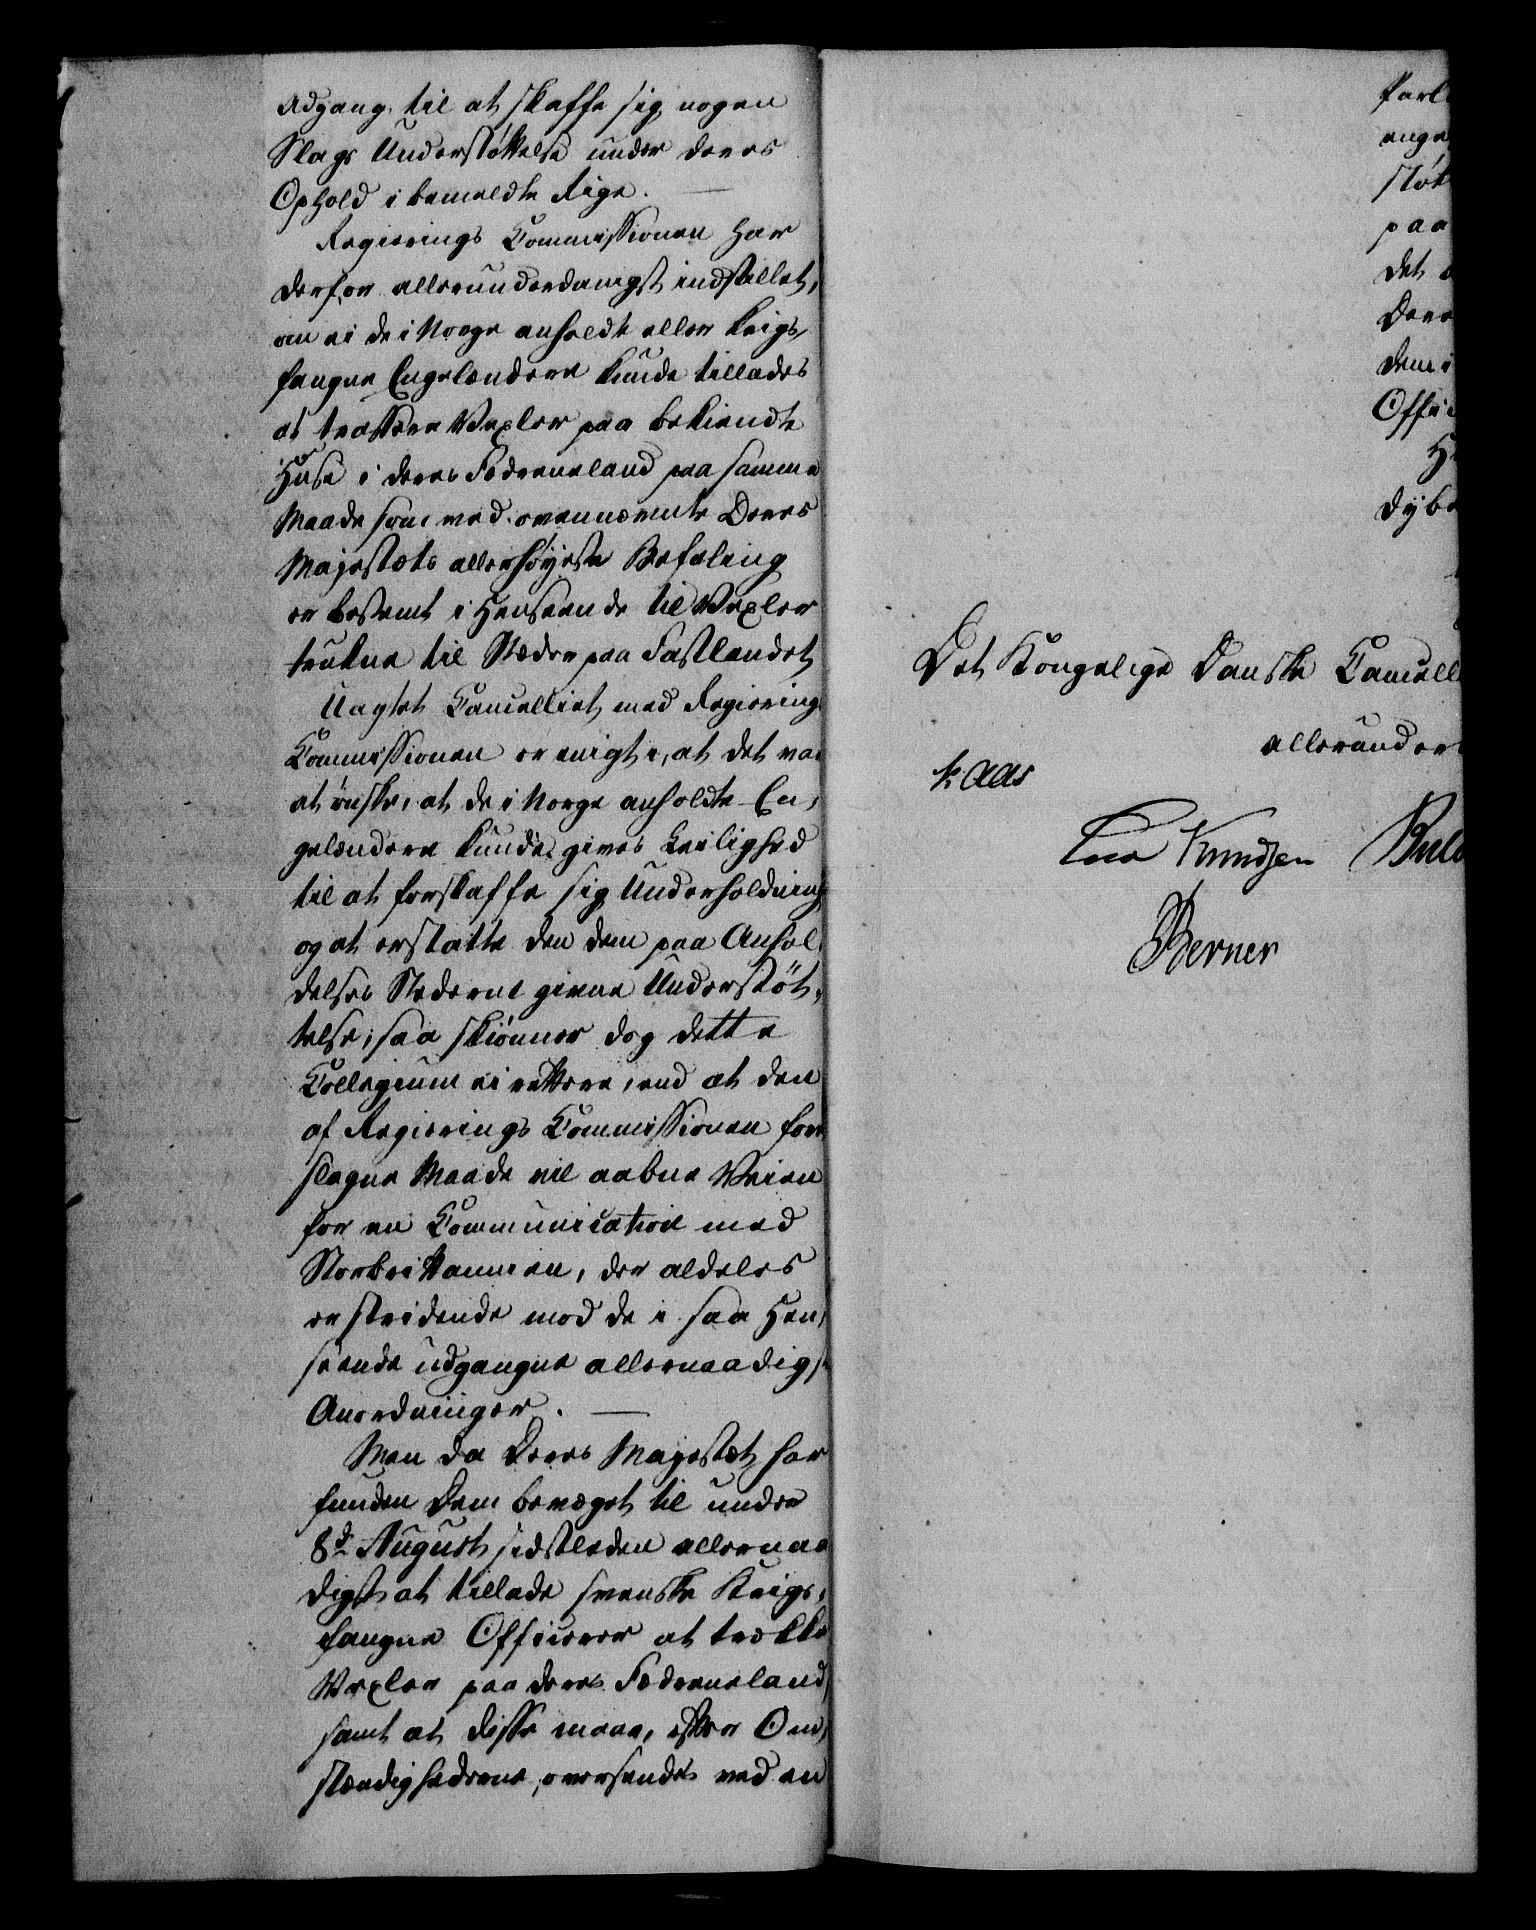 Adgang til at skaffe sig nogen
Slags Understøttelse under deres
Ophold i bemeldte Rige. —
Regierings Commissionen har
derfor allerunderdanigst indstillet,
om ei de i Norge anholdte eller krigs-
fangne Engelændere kunde tillades
at trassere Vexler paa bekiendte
Huse i deres Fædreneland paa samme
Maade som ved ovennævnte Deres
Majestæts allerhøyeste Befaling
er bestemt i Henseende til Vexler
trukne til Stæder paa Fastlandet
Uagtet Cancelliet med Regierings
Commissionen er enigt i, at det var
at ønske, at de i Norge anholdte En-
gelændere kunde gives Leilighed
til at forskaffe sig Underholdning
og at erstatte den dem paa Anhol-
delses Stederne givne Understøt-
telse, saa skiønner dog dette
Collegium ei rettere, end at den
af Regierings Commissionen fore
slagne Maade vil aabne Veien
for en Communication med
Storbrittannien, der aldeles
er stridende mod de i saa Hen-
seende udgangne allernaadigste
Anordninger. —
Men da Deres Majestæt har
funden Dem bevæget til under
8d August sidstleden allernaa
digst at tillade svenske Krigs-
fangne Officerer at trække
Vexler paa deres Fædreneland,
samt at disse maae, efter Om-
stændighederne, oversendes ved en
Parl
enge
støt
paa
det
Dere
dem i
Offic
dybe
Det Kongelige Danske Cancell
allerunder
Kaas
Knudsen Bül
Berner